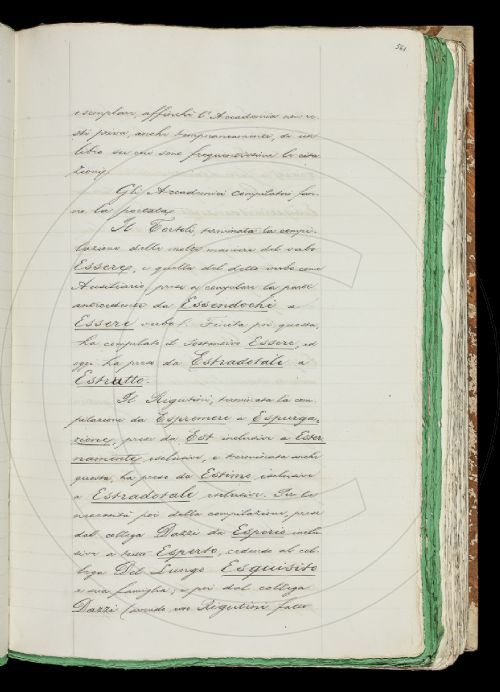 561
esemplari, affinchè l'Accademia non re-
sti priva, anche temporaneamente, di un
libro su cui sono frequentissime le cita-
zioni.
Gli Accademici compilatori fan-
no la portata.
Il Tortoli, terminata la compi-
lazione delle molte maniere del verbo
Essere, e quella del detto verbo come
Ausiliario, prese a compilare la parte
antecedente da Essendochè a
Essere verbo. Finita poi questa,
ha compilato il Sostantivo Essere, ed
oggi ha preso da Estradotale a
Estrutto.
Il Rigutini, terminata la com-
pilazione da Espromere a Espurga-
zione, prese da Est inclusive a Ester-
namente, esclusive, e terminata anche
questa, ha preso da Estimo, inclusive
a Estradotale esclusive. Per la
poi della compilazione, prese
dal collega Dazzi da Esperio inclu-
sive a tutto Esperto, cedendo al col-
lega Del Lungo Esquisito
e sua famiglia; e poi dal collega
Dazzi (avendo Rigutini fatto